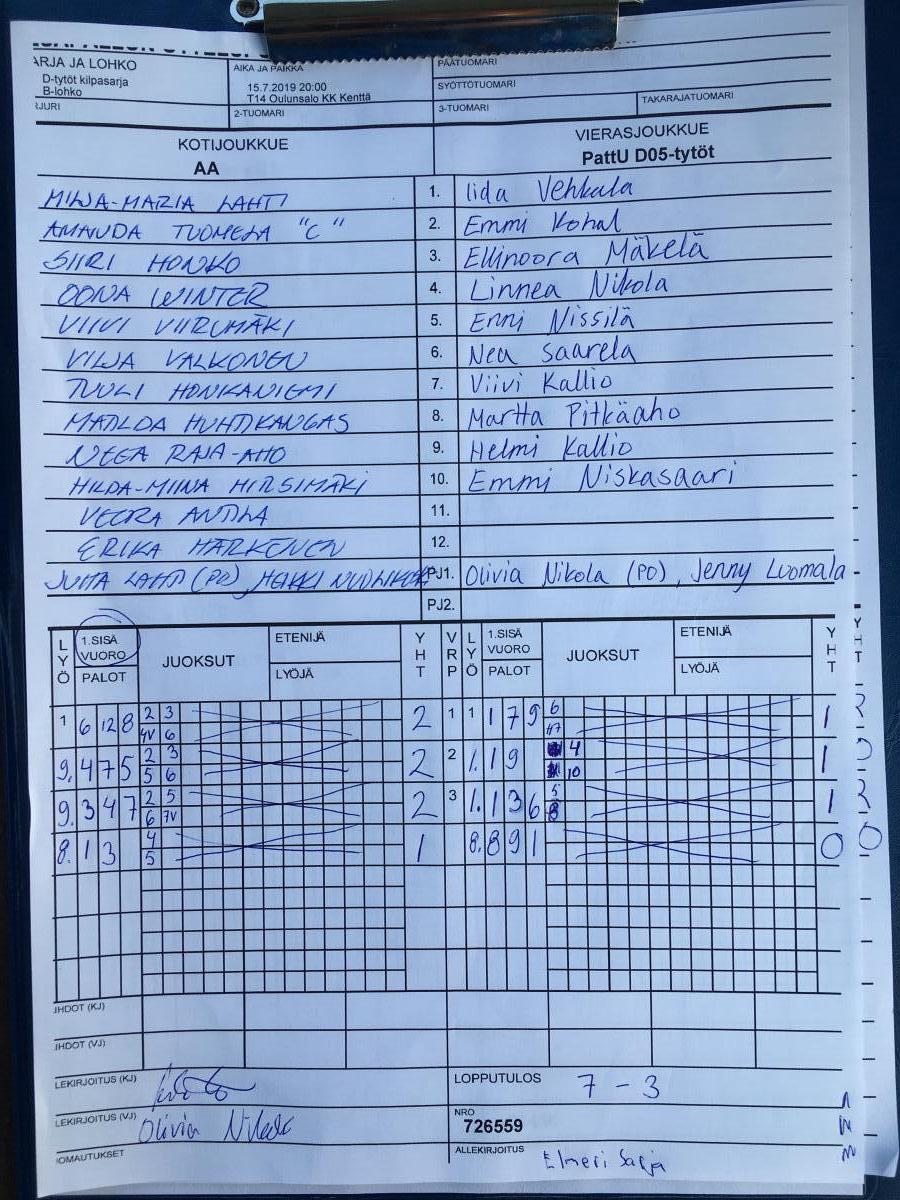 ARJA JA LOHKO
D-tytöt kilpasarja
B-lohko
AIKA JA PAIKKA
15.7.2019 20:00
T14 Oulunsalo KK Kenttä
PÄÄTUOMARI
SYÖTTÖTUOMARI
2-TUOMARI
3-TUOMARI
TAKARAJATUOMARI
KOTIJOUKKUE
AA
VIERASJOUKKUE
PattU D05-tytöt
MILJA-MARIA LAHTI 1. Iida Vehkala
AMANDA TUOMELA "C" 2. Emmi
SIIRI HONKO 3. Ellinoora Mäkelä
OONA WINTER 4. Linnea Nikola
VIIVI VIIRUMÄKI 5. Enni Nissilä
VILJA VALKONEN 6. Nea Saarela
TUULI HONKANIEMI 7. Viivi Kallio
MATILDA HUHTIKANGAS 8. Martta Pitkäaho
NEEA RAJA-AHO 9. Helmi Kallio
HILDA-MIINA HIRSIMÄKI 10. Emmi Niskasaari
VEERA ANTILA 11.
ERIKA HÄRKÖNEN 12.
JUTTA LAHTI (PO), HEIKKI PJ1. Olivia Nikola (PO), Jenny Luomala
PJ2.
LYÖ 1.SISÄ VUORO PALOT JUOKSUT ETENIJÄ LYÖJÄ YHT VRP LYÖ 1.SISÄ VUORO PALOT JUOKSUT ETENIJÄ LYÖJÄ YHT
1 6 12 8 2 3 4V 6 2 1 1 1 7 9 6 1
9. 4 7 5 2 3 5 6 2 2 1. 1 9 4 10 1
9. 3 4 7 2 5 6 7V 2 3 1. 1 3 6 5 8 1
8. 1 3 4 5 1 8. 8 9 1 0
IHDOT (KJ)
IHDOT (VJ)
LEKIRJOITUS (KJ)
LOPPUTULOS 7 - 3
LEKIRJOITUS (VJ) Olivia Nikola
NRO
726559
IOMAUTUKSET
ALLEKIRJOITUS Elmeri Sarja